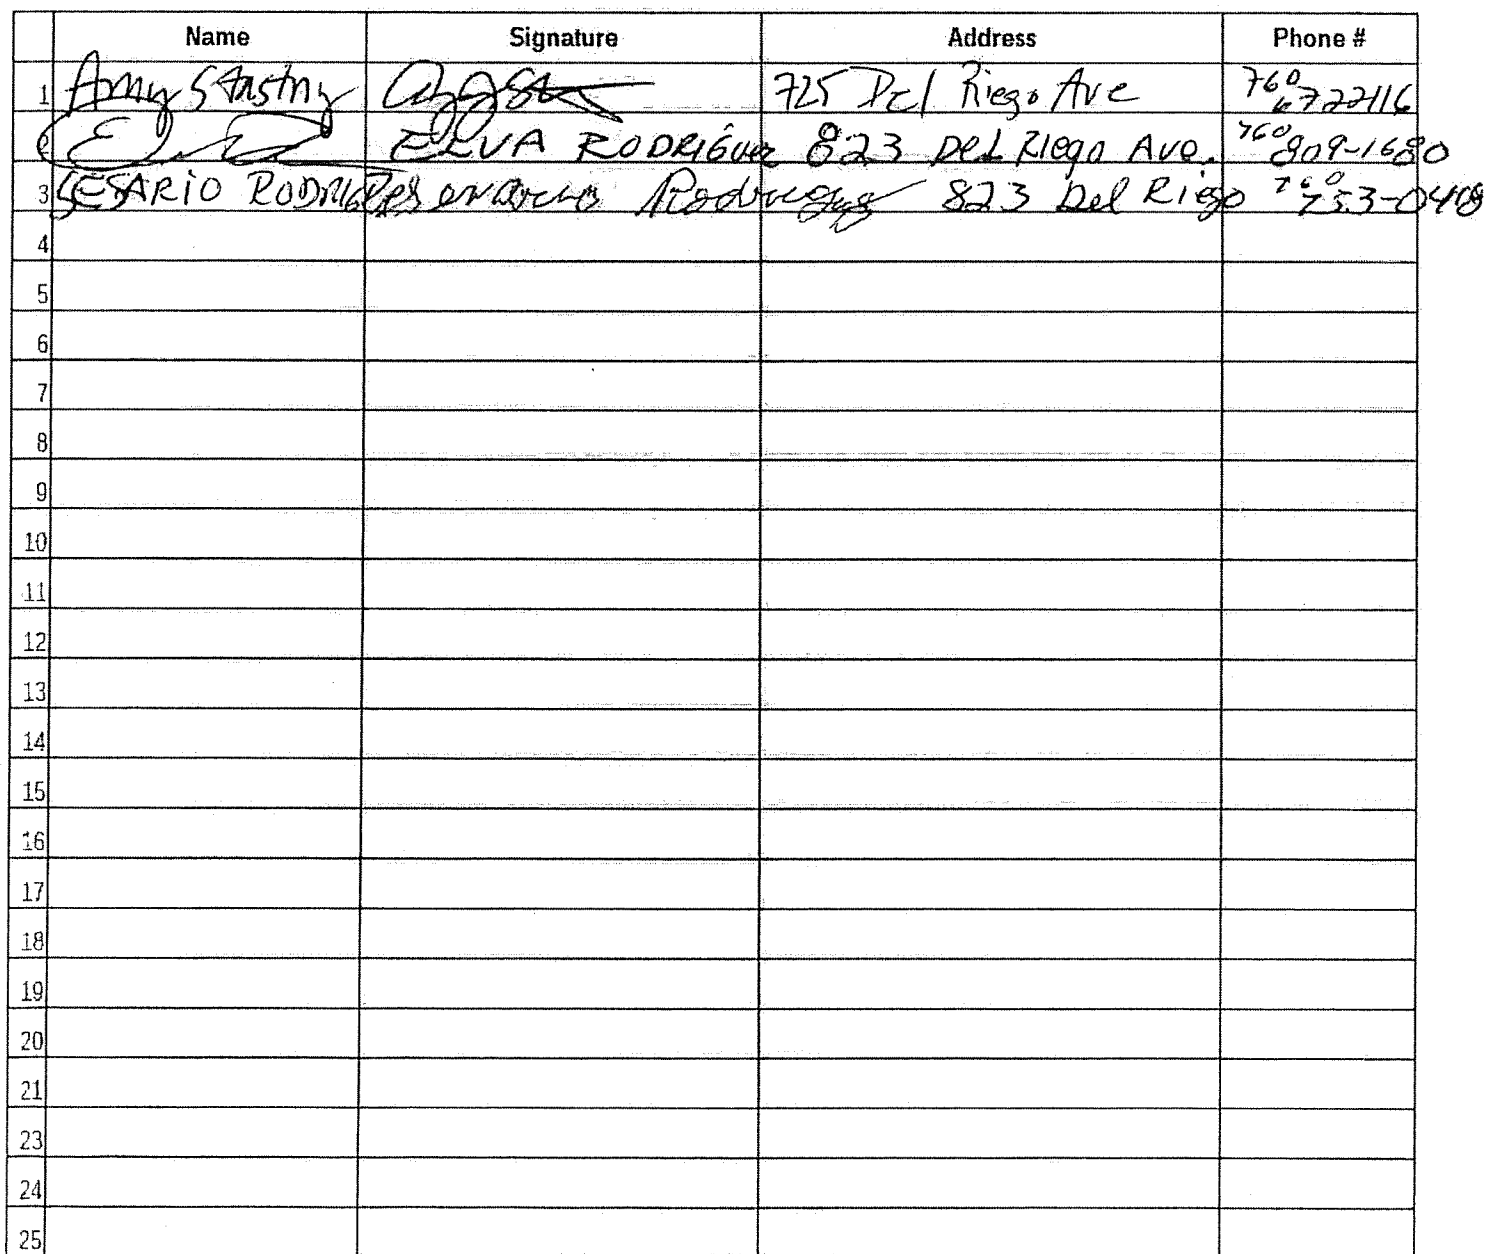 Name Signature Address Phone #
1 Amy Stastny 725 Del Riego Ave 760 6722116
ELVA RODRÍGUEZ 823 Del Riego Ave. 760 809-1680
3 CESARIO RODRIGUEZ Rodriguez 823 Del Riego 760 753-0408
4
5
6
7
8
9
10
11
12
13
14
15
16
17
18
19
20
21
23
24
25